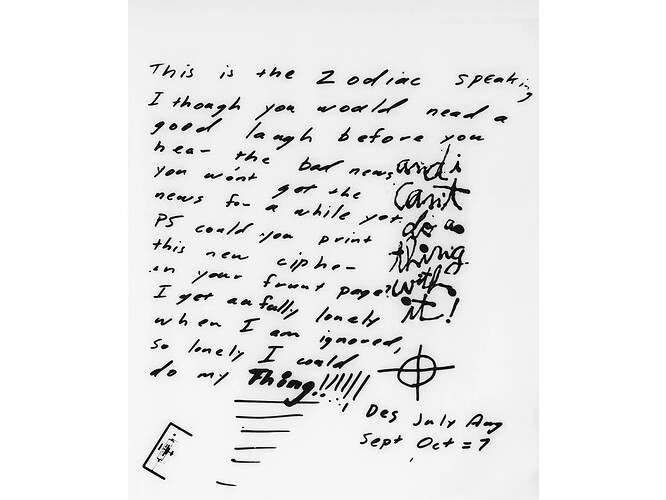 This is the Zodiac speaking
I though you would need a
good laugh before you
hear the bad news
you won't get the
news for a while yet
PS could you print
this new cipher
on your frunt page?
I get awfully lonely
when I am ignored,
so lonely I could
do my Thing!!!!!!
and i
can't
do a
thing
with
it!
Des July Aug
Sept Oct = 7